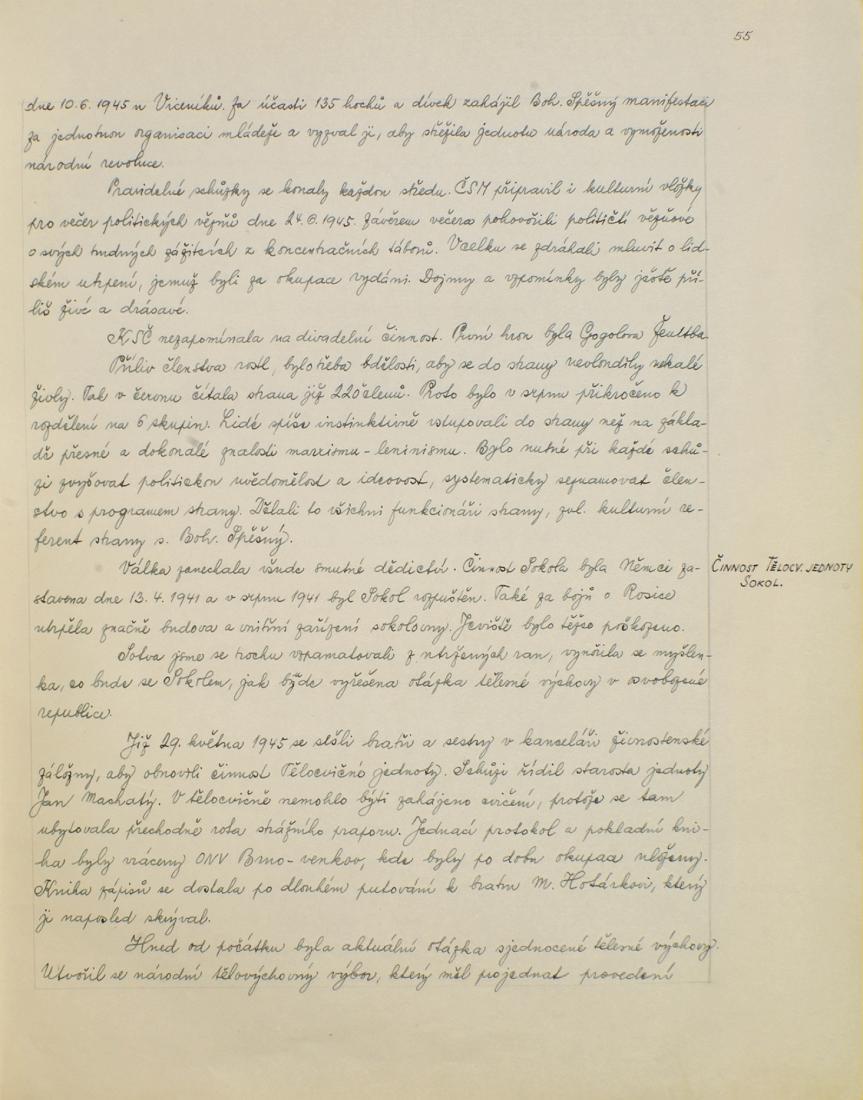 55
dne 10.6.1945 u Viceníků. Za účasti 135 hochů a dívek zahájil Boh. Spěšný manifestaci
za jednotnou organisaci mládeže a vyzval ji, aby střežila jednotu národa a vymoženosti
národní revoluce.
Pravidelné schůzky se konaly každou středu. ČSM připravil i kulturní vložky
pro večer politických vězňů dne 24.6.1945. Závěrem večera pohovořili političtí vězňové
o svých trudných zážitcích z koncentračních táborů. Vcelku se zdráhali mluvit o lid-
ském utrpení, jemuž byli za okupace vydáni. Dojmy a vzpomínky byly ještě pří-
liš živé a drásavé.
KSČ nezapomínala na divadelní činnost. První hrou byla Gogolova Ženitba.
Příliv členstva rostl, bylo třeba bdělosti, aby se do strany nevloudily nekalé
živly. Tak v červnu čítala strana již 220 členů. Proto bylo v srpnu přikročeno k
rozdělení na 6 skupin. Lidé spíše instinktivně vstupovali do strany než na zákla-
dě přesné a dokonalé znalosti marxismu-leninismu. Bylo nutné při každé schů-
zi zvyšovat politickou uvědomělost a ideovost, systematicky seznamovat člen-
stvo s programem strany. Dělali to všichni funkcionáři strany, zvl. kulturní re-
ferent strany s. Boh. Spěšný.
Válka zanechala všude smutné dědictví. Činnost Sokola byla Němci za-
ČINNOST TĚLOCV. JEDNOTY
SOKOL.
stavena dne 13.4.1941 a v srpnu 1941 byl Sokol rozpuštěn. Také za bojů o Rosice
utrpěla značně budova a vnitřní zařízení sokolovny. Jeviště bylo těžce poškozeno.
Sotva jsme se trochu vzpamatovali z utržených ran, vynořila se myšlen-
ka, co bude se Sokolem, jak bude vyřešena otázka tělesné výchovy v osvobozené
republice.
Již 29. května 1945 se sešli bratři a sestry v kanceláři živnostenské
záložny, aby obnovili činnost Tělocvičné jednoty. Schůzi řídil starosta jednoty
Jan Machatý. V tělocvičně nemohlo býti zahájeno cvičení, protože se tam
ubytovala přechodně rota strážního praporu. Jednací protokol a pokladní kni-
ha byly vráceny ONV Brno-venkov, kde byly po dobu okupace uloženy.
Kniha zápisů se dostala po dlouhém putování k bratru M. Hotárkovi, který
ji naposled skrýval.
Hned od počátku byla aktuální otázka sjednocené tělesné výchovy.
Utvořil se národní tělovýchovný výbor, který měl projednat provedení